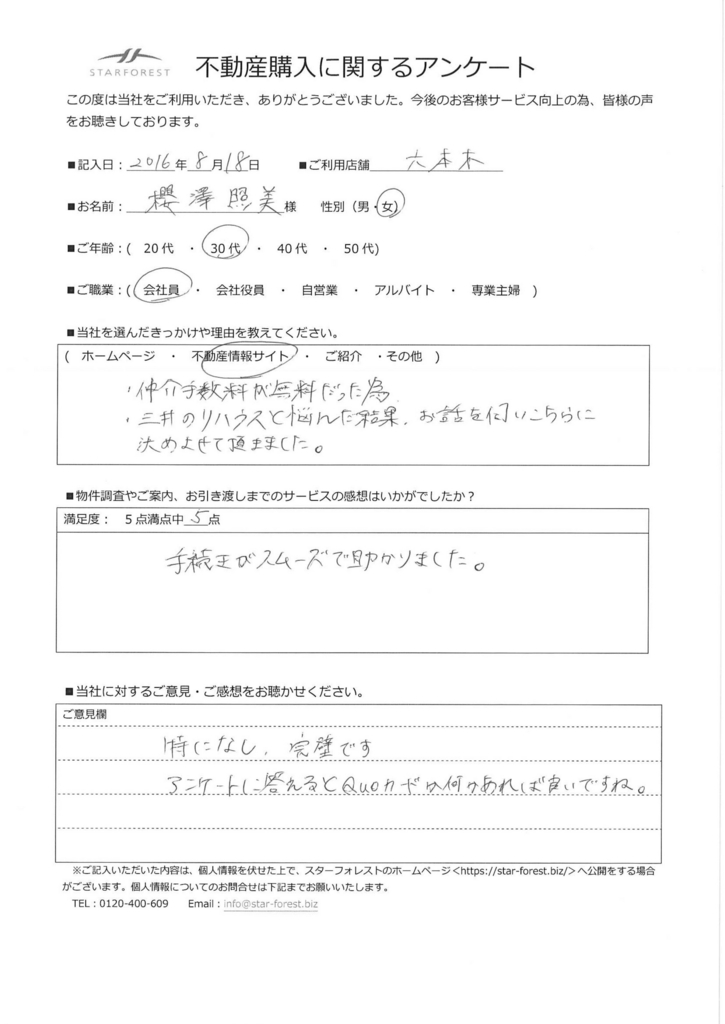 STARFOREST
不動産購入に関するアンケート
この度は当社をご利用いただき、ありがとうございました。今後のお客様サービス向上の為、皆様の声
をお聴きしております。
■記入日：2016年8月18日 ■ご利用店舗 六本木
■お名前：櫻澤照美様 性別（男・女）
■ご年齢：( 20代 ・ 30代 ・ 40代 ・ 50代)
■ご職業：( 会社員 ・ 会社役員 ・ 自営業 ・ アルバイト ・ 専業主婦 )
■当社を選んだきっかけや理由を教えてください。
( ホームページ ・ 不動産情報サイト ・ ご紹介 ・その他 )
・仲介手数料が無料だった為
・三井のリハウスと悩んだ結果、お話を伺いこちらに
決めさせて頂きました。
■物件調査やご案内、お引き渡しまでのサービスの感想はいかがでしたか？
満足度： 5点満点中5点
手続きがスムーズで助かりました。
■当社に対するご意見・ご感想をお聴かせください。
ご意見欄
特になし、完璧です
アンケートに答えるとQuoカードか何かあれば良いですね。
※ご記入いただいた内容は、個人情報を伏せた上で、スターフォレストのホームページ<https://star-forest.biz/>へ公開をする場合
がございます。個人情報についてのお問合せは下記までお願いいたします。
TEL：0120-400-609 Email：info@star-forest.biz